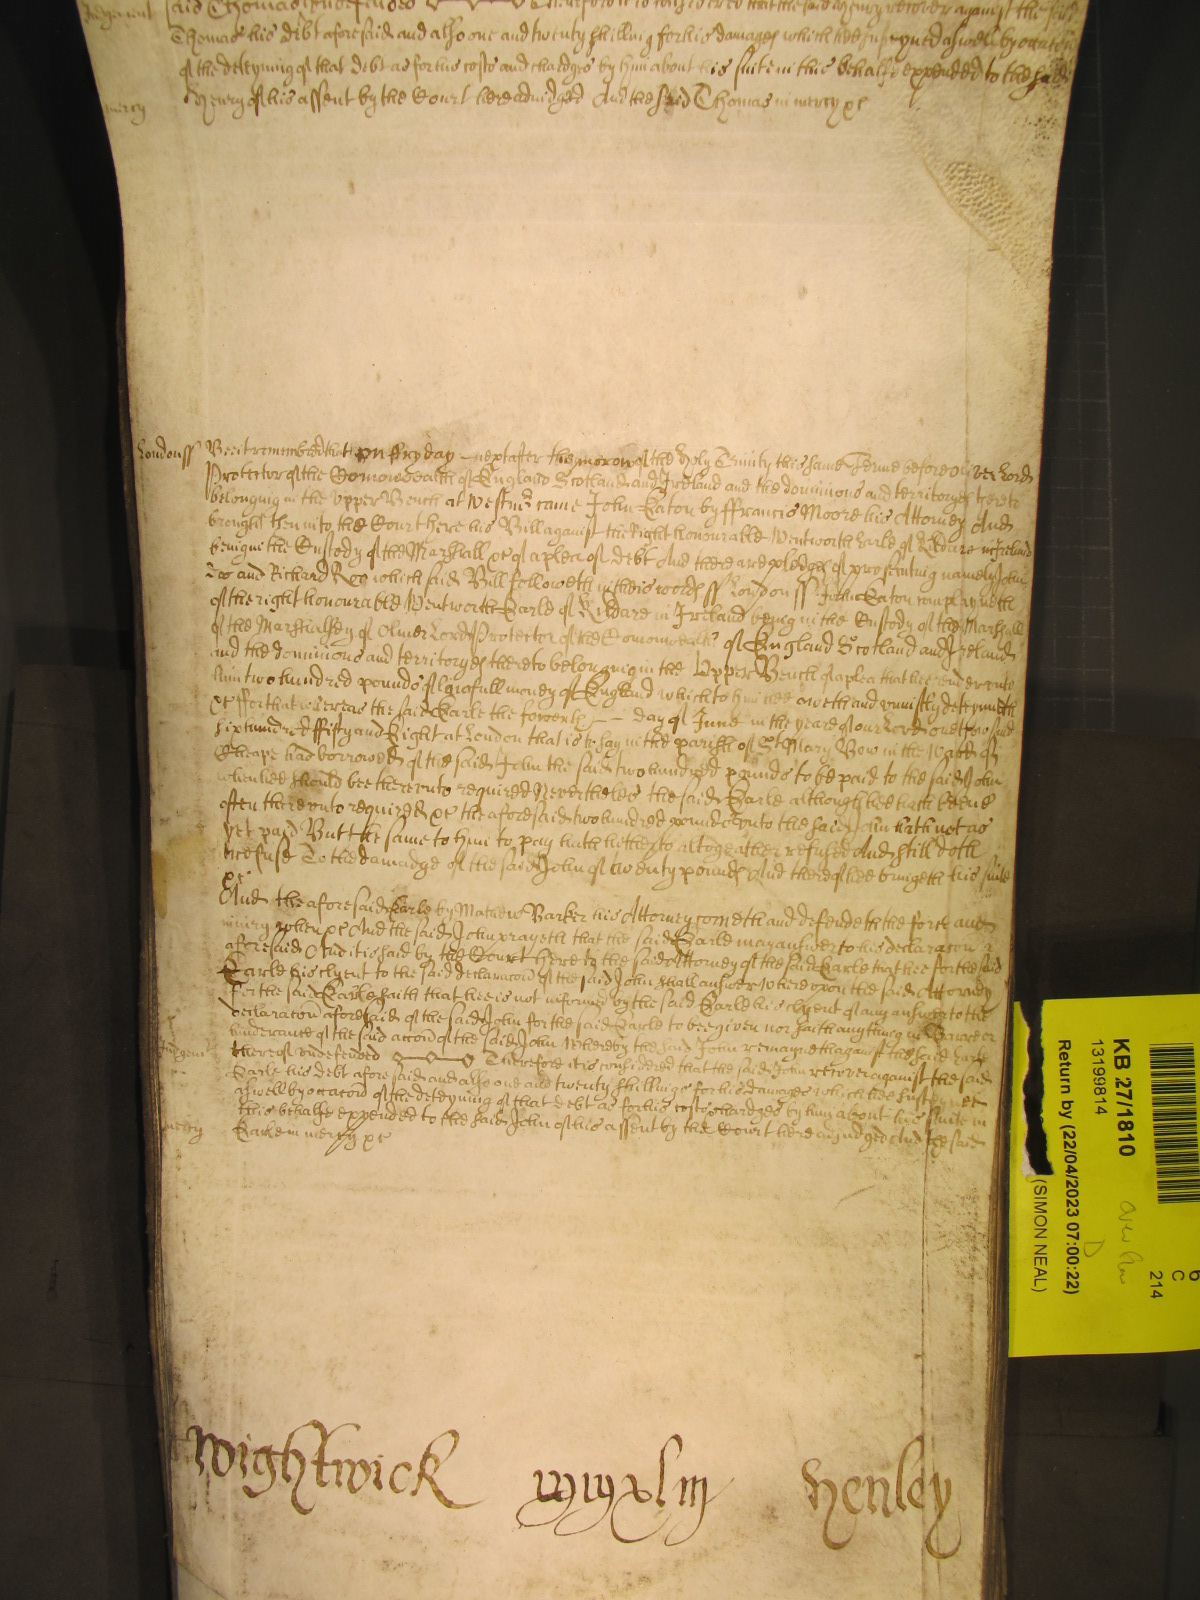 Judgment said Thomas undefended Therefore it is considered that the said Henry recover against the said
Thomas his debt aforesaid and also one and twenty shillings for his damages which hee susteyned aswell by occacon
of the deteyning of that debt as for his costs and chardges by him about his suite in this behalfe expended to the said
mercy Henry of his assent by the Court here adiudged And the said Thomas in mercy &c
London ss Bee it remembred that on ffryday next after the morow of the Holy Trinity this same Terme before Oliver Lord
Protector of the Comonwealth of England Scotland and Ireland and the dominions and territoryes thereto
belonging in the Upper Bench at Westmr came John Eaton by ffrancis Moore his Attorney And
brought then into the Court here his Bill against the Right honourable Wentworth Earle of Kildare in Ireland
being in the Custody of the Marshall &c of a plea of debt And there are pledges of prosecuting namely John
Doo and Richard Roo which said Bill followeth in theis words ss London ss John Eaton complayneth
of the right honourable Wentworth Earle of Kildare in Ireland being in the Custody of the Marshall
of the Marshalsey of Oliver Lord Protector of the Comonwealth of England Scotland and Ireland
and the dominions and territoryes thereto belonging in the Upper Bench of a plea that hee render unto
him two hundred pounds of lawfull money of England which to him hee oweth and uniustly deteyneth
&c ffor that whereas the said Earle the fowerth day of June in the yeare of our Lord one thousand
six hundred ffifty and Eight at London that is to say in the parish of St Mary Bow in the Ward of
Cheape had borrowed of the said John the said two hundred pounds to be paid to the said John
when hee should bee thereunto required Neverthelesse the said Earle although hee hath beene
often thereunto required &c the aforesaid two hundred pounds unto the said John hath not as
yet payd But the same to him to pay hath hitherto altogeather refused And still doth
refuse To the damadge of the said John of twenty pounds And thereof hee bringeth his suite
&c
And the aforesaid Earle by Mathew Barker his Attorney cometh and defendeth the force and
iniury when &c And the said John prayeth that the said Earle may answer to his declaracon
aforesaid And it is said by the Court here to the said Attorney of the said Earle that hee for the said
Earle his clyent to the said declaracon of the said John shall answer Whereupon the said Attorney
for the said Earle saith that hee is not informed by the said Earle his clyent of any answer to the
declaracon aforesaid of the said John for the said Earle to bee given nor saith any thing in Barre or
hinderance of the said accon of the said John Whereby the said John remayneth against the said Earle
Judgment thereof undefended Therefore it is considered that the said John recover against the said
Earle his debt aforesaid and also one and twenty shillings for his damages which hee susteyned
aswell by occacon of the deteyning of that debt as for his costs & chardges by him about his suite in
this behalfe expended to the said John of his assent by the Court here adiudged And the said
mercy Earle in mercy &c
Wightwick Henley
KB 27/1810
13199814
Return by (22/04/2023 07:00:22)
(SIMON NEAL)
6
C
214